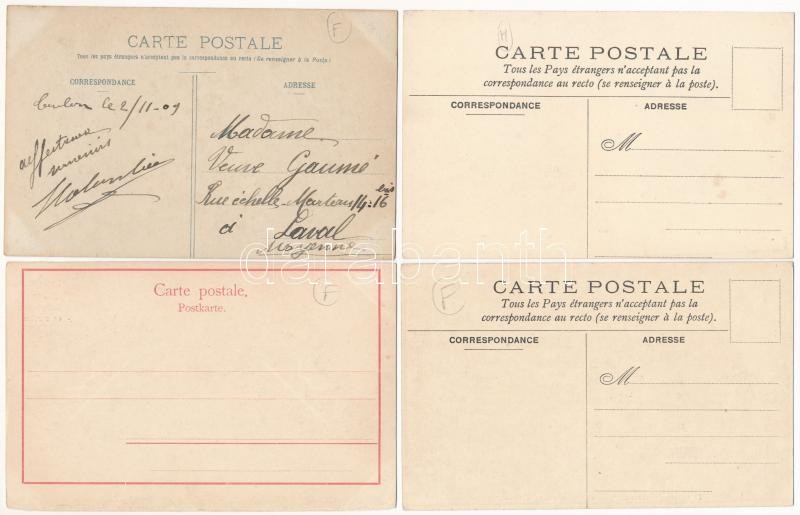 F
CARTE POSTALE
Tous les pays étrangers n'acceptent pas la correspondance au recto (Se renseigner à la Poste)
CORRESPONDANCE
ADRESSE
le 2/11-09
affectueux
souvenirs
Madame
Veuve Gaumé
Rue échelle-Marteau 14-16 bis
à Laval
Mayenne
H
CARTE POSTALE
Tous les Pays étrangers n'acceptant pas la
correspondance au recto (se renseigner à la poste).
CORRESPONDANCE
ADRESSE
M
Carte postale.
Postkarte.
F
F
CARTE POSTALE
Tous les Pays étrangers n'acceptant pas la
correspondance au recto (se renseigner à la poste).
CORRESPONDANCE
ADRESSE
M
darabanth